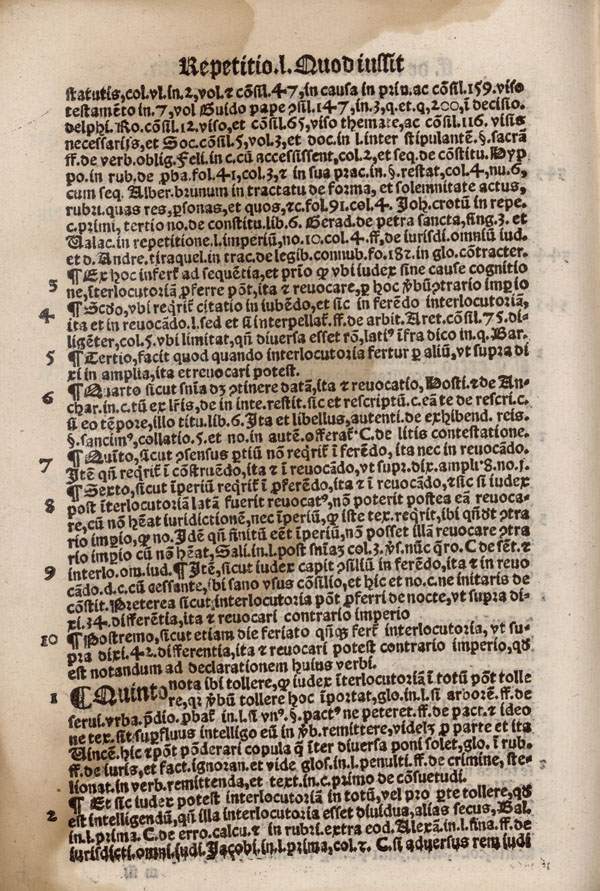 Repetitio.l. Quod iussit
statutis,col.vl.in.2,vol.⁊ cõsil.47,in causa in prin.ac cõsil.159.viso
testamẽto in.7,vol Guido pape ↄsil.147,in.3,q.et.q,200,ĩ decisio.
delphi.Ro.cõsil.12.viso,et cõsil.65,viso themate,ac cõsil.116.visis
necessarijs,et Soc.cõsil.5,vol.3,et doc.in l.inter stipulantẽ.§.sacrã
ff.de verb.oblig.Feli.in c.cũ accessissent,col.2,et seq.de cõstitu.Hyp
po.in rub.de ꝓba.fol.41,col.3,⁊ in sua prac.in §.restat,col.4,nu.6,
cum seq. Alber.brunum in tractatu de forma,et solemnitate actus,
rubri.quas res,ꝑsonas,et quos,⁊c.fol.91.col.4. Joh.crotũ in repe.
c.primi,tertio no.de constitu.lib.6. Gerad.de petra sancta,sing.3. et
Ualac.in repetitione.l.imperiũ,no.10.col.4.ff,de iurisdi.omniũ iud.
et d. Andre.tiraquel.in trac.de legib.connub.fo.182.in glo.cõtracter.
¶ Ex hoc infertᷣ ad sequẽtia,et prĩo ꝙ vbi iudex sine cause cognitio
3 ne,ĩterlocutoriã ꝓferre põt,ita ⁊ revocare,ꝑ hoc ꝟbũↄtrario imp̃io
¶ Scd̃o,vbi reqrĩtᷣ citatio in iubẽdo,et sic in ferẽdo interlocutoriã,
4 ita et in revocãdo.l.sed et si interpellatᷣ.ff.de arbit.Aret.cõsil.75.di-
ligẽter,col.5.vbi limitat,qñ diversa esset rõ,latiꝰ ĩfra dico in.q.Bar.
5 ¶ Tertio,facit quod quando interlocutoria fertur ꝑ aliũ,vt supra di
xi in amplia,ita et revocari potest.
6 ¶ Quarto sicut sñia dꝫ ↄtinere datã,ita ⁊ revocatio, Hosti.⁊ de An-
char.in.c.tũ ex lr̃is,de in inte.restit.sic et rescriptũ.c.eã te de rescri.c.
si eo tẽpore,illo titu.lib.6. Ita et libellus,autenti.de exhibend. reis.
§.sancimꝰ,collatio.5.et no.in autẽ.offeratᷣ C.de litis contestatione.
¶ Quĩto,sicut ↄsensus ꝑtiũ nõ reqrĩtᷣ ĩ ferẽdo,ita nec in revocãdo.
7 Itẽ qñ reqrĩtᷣ ĩ cõstruẽdo,ita ⁊ ĩ revocãdo,vt supr.dix.ampli.8.no.5.
¶ Sexto,sicut ĩperiũ reqrĩtᷣ ĩ ꝓferẽdo,ita ⁊ ĩ revocãdo,⁊ sic si iudex
8 post ĩterlocutoriã latã fuerit revocatꝰ,nõ poterit postea eã revoca-
re,cũ nõ hẽat iuridictionẽ,nec ĩperiũ,ꝙ iste tex.reqrit,ibi qñd̃t ↄtra
rio imp̃io,ꝙ no. Idẽ qñ finitũ eẽt ĩperiũ,nõ posset illã revocare ↄtra
rio imp̃io cũ nõ hẽat,Sali.in.l.post sñiaꝫ col.3.ꝟs.nũc q̃ro. C de sẽt.⁊
9 interlo.om.iud.¶ Itẽ,sicut iudex capit ↄsiliũ in ferẽdo,ita ⁊ in revo
cãdo.d.c.cũ cessante,ibi sano vsus cõsilio,et hic et no.c.ne initaris de
cõstit.Preterea sicut interlocutoria põt ꝓferri de nocte,vt supra di-
xi.34.differẽtia,ita ⁊ revocari contrario imperio
10 ¶ Postremo,sicut etiam die feriato qñqꝫ fertᷣ interlocutoria, vt su-
pra dixi.42.differentia,ita ⁊ revocari potest contrario imperio,qd̃
est notandum ad declarationem huius verbi.
1 ¶ Quinto nota ibi tollere,ꝙ iudex ĩterlocutoriã ĩ totũ põt tolle
re,qꝛ ꝟbũ tollere hoc ĩportat,glo.in.l.si arborẽ.ff.de
servi.vrba.p̃dio. ꝓbatᷣ in.l.si vnꝰ.§.pactꝰ ne peteret.ff.de pact.⁊ ideo
ne tex.sit supfluus intelligo eũ in ꝟb.remittere,videlꝫ ꝓ parte et ita
Uincẽ.hic ⁊ põt põderari copula ꝙ ĩter diversa poni solet,glo.ĩ rub.
ff.de iuris,et fact.ignoran.et vide glos.in.l.penulti.ff.de crimine, ste-
lionat.in verb.remittenda,et text.in c.primo de cõsuetudi.
¶ Et sic iudex potest interlocutoriã in totũ,vel pro parte tollere,qd̃
2 est intelligendũ,qñ illa interlocutoria esset dividua,alias secus, Bal.
in.l.prima. C.de erro.calcu.⁊ in rubri.extra eod.Alexã.in.l.fina.ff.de
iurisdicti.omni.iudi.Jacobi.in l.prima,col.2. C.si adversus rem iudi